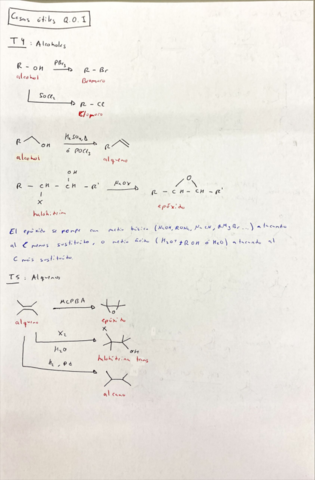 Cosas útiles Q.O.I
T4: Alcoholes
R - OH PBr3 R - Br
alcohol Bromuro
SOCl2 R - Cl
Cloruro
OH H2SO4, Δ
ó POCl3
alcohol alqueno
OH O
R - CH - CH - R' NaOH R - CH - CH - R'
X
halohidrina epóxido
El epóxido se rompe con medio básico atacando
al C menos sustituido, o medio ácido (H3O+ ROH ó H2O) atacando al
C más sustituido.
T5: Alquenos
MCPBA
O
alqueno epóxido
X2 X
H2O OH
halohidrina trans
H2, Pd
alcano